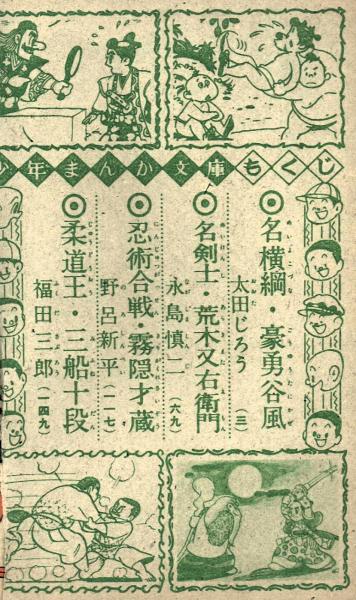 少年まんが文庫もくじ
◎名横綱・豪勇谷風
太田じろう(三)
◎名剣士・荒木又右衛門
永島慎二(六九)
◎忍術合戦・霧隠才蔵
野呂新平(一一七)
◎柔道王・三船十段
福田三郎(一四九)